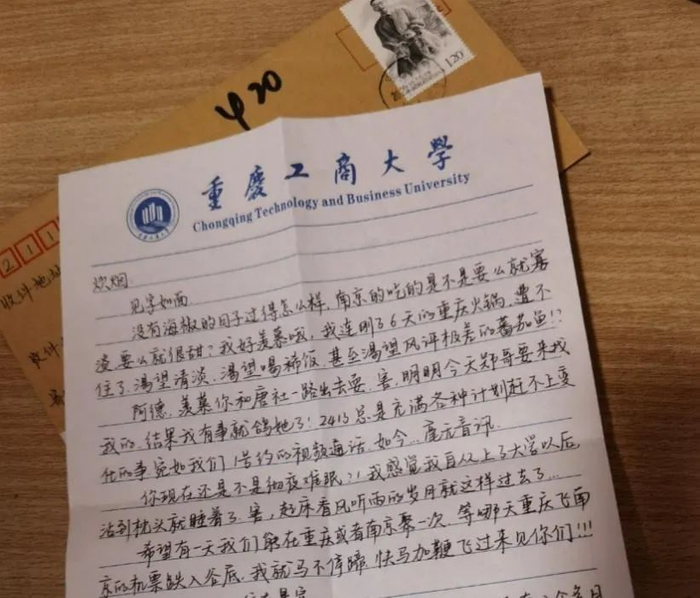 120
420
211
收件地址
重庆工商大学
Chongqing Technology and Business University
炊烟:
见字如面
没有海椒的日子过得怎么样,南京的吃的是不是要么就寡
淡要么就很甜?我好羡慕哦,我连刷了6天的重庆火锅,遭不
住了.渴望清淡.渴望喝稀饭.甚至渴望风评极差的蕃茄鱼!?
阿德.羡慕你和唐社一路出去耍.害.明明今天郑哥要来找
我的.结果我有事就鸽她了!2413总是充满各种计划赶不上变
化的事宛如我们1号约的视频通话.如今...渺无音讯.
你现在还是不是彻夜难眠?!我感觉我自从上了大学以后
沾到枕头就睡着了.害,起床看风听雨的岁月就这样过去了...
希望有一天我们能在重庆或者南京聚一次.等哪天重庆飞南
京的机票跌入谷底.我就马不停蹄 快马加鞭飞过来见你们!!!